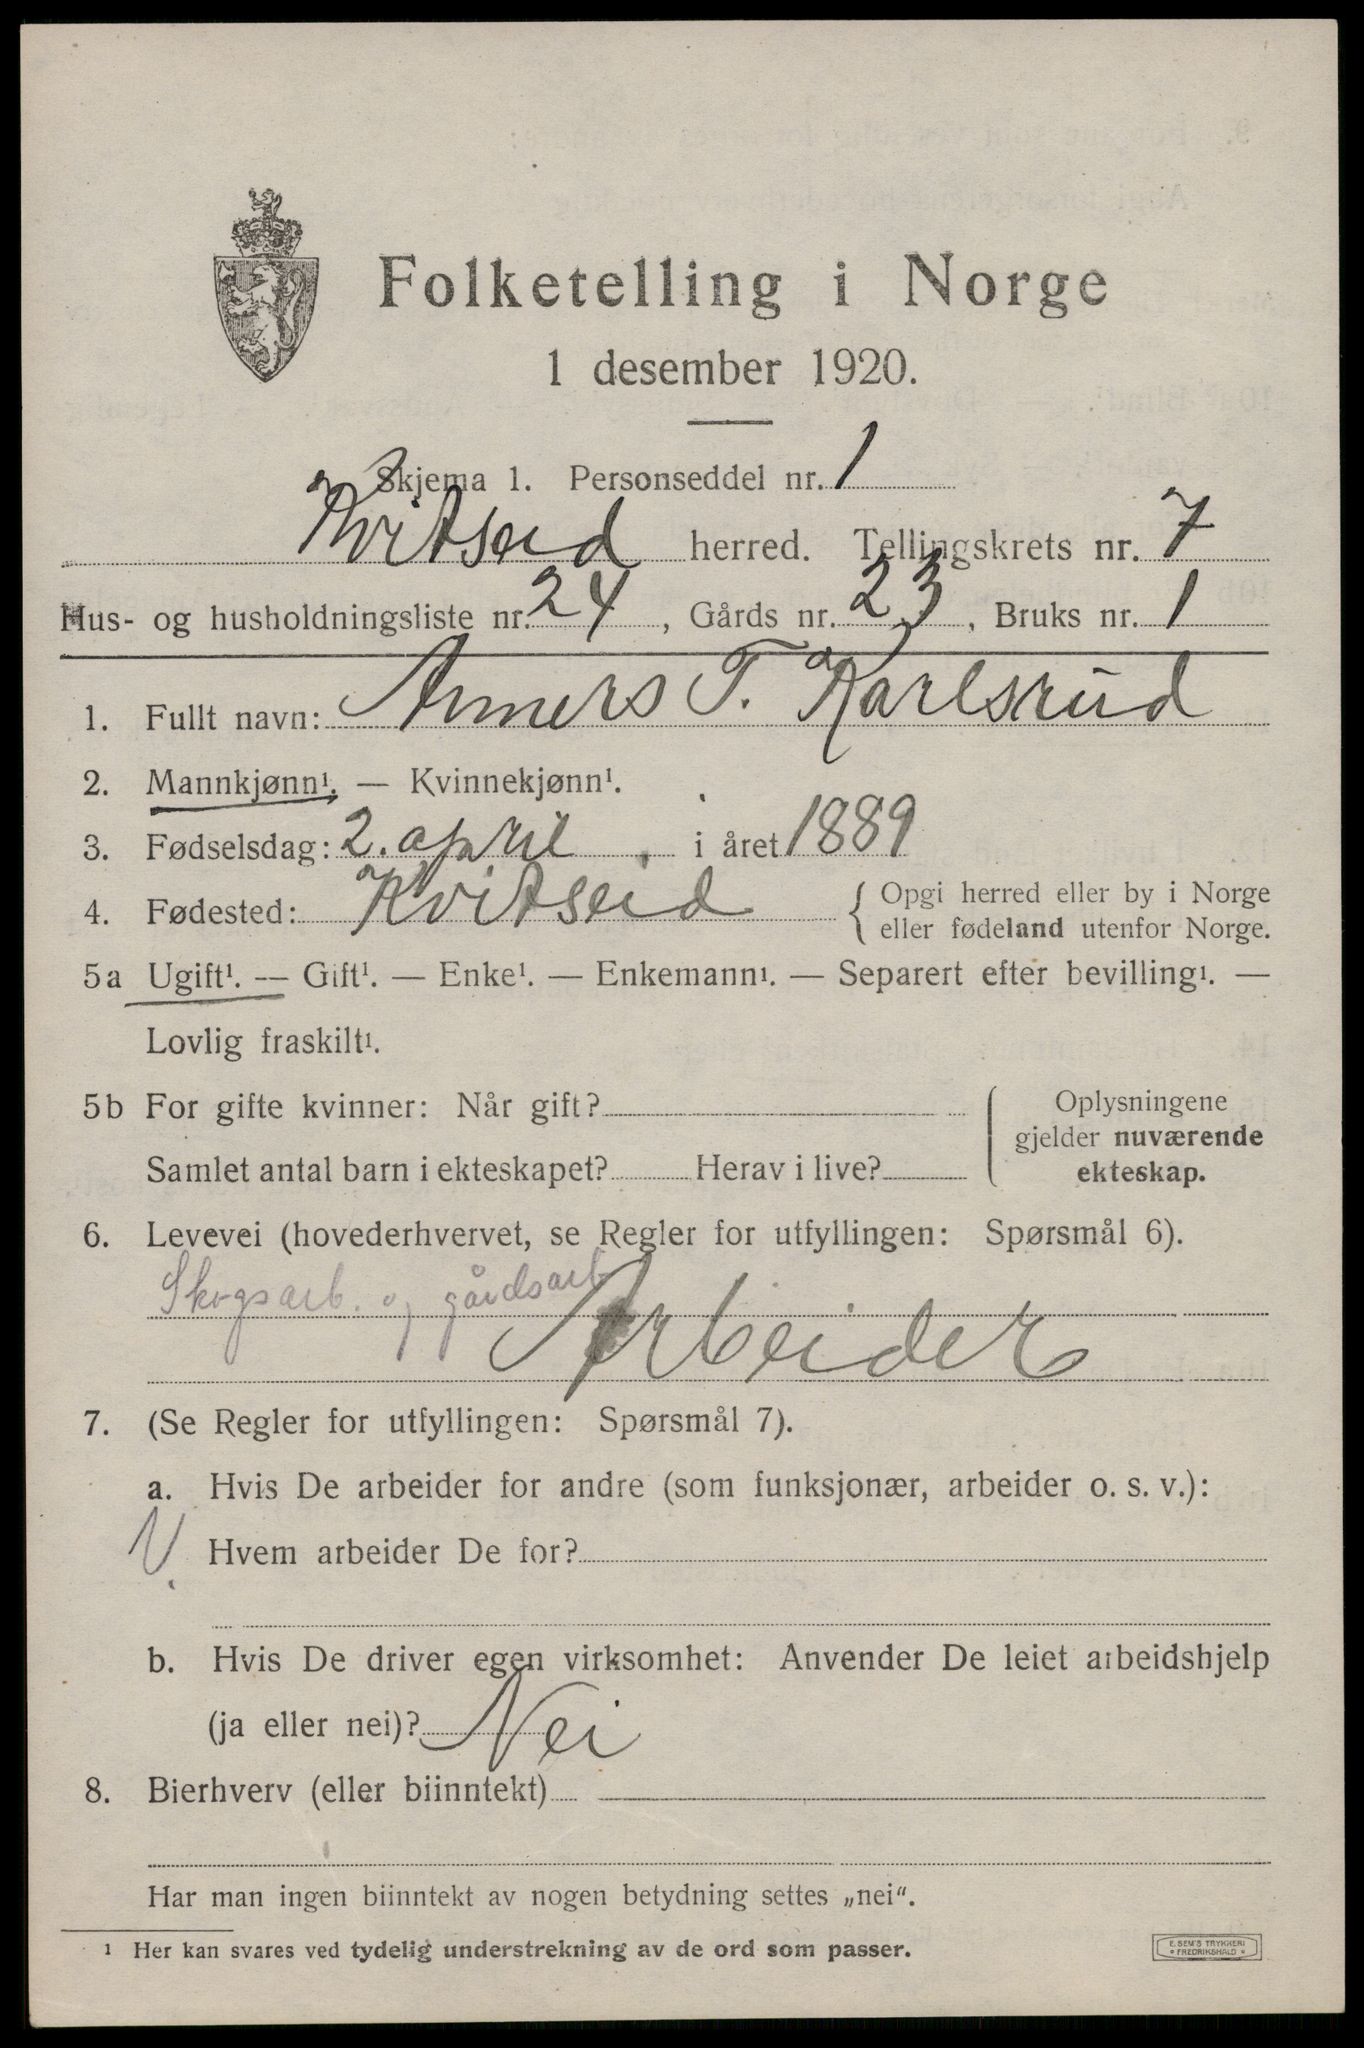 Folketelling i Norge
1 desember 1920.
Skjema 1. Personseddel nr. 1
Kvitseid herred. Tellingskrets nr. 7
Hus- og husholdningsliste nr. 24, Gårds nr. 23, Bruks nr. 1
1. Fullt navn: Anners T. Karlsrud
2. Mannkjønn¹. — Kvinnekjønn¹.
3. Fødselsdag: 2. april, i året 1889
4. Fødested: Kvitseid { Opgi herred eller by i Norge
eller fødeland utenfor Norge.
5a Ugift¹. — Gift¹. — Enke¹. — Enkemann¹. — Separert efter bevilling¹. —
Lovlig fraskilt¹.
5b For gifte kvinner: Når gift?
Samlet antal barn i ekteskapet? Herav i live?
Oplysningene
gjelder nuværende
ekteskap.
6. Levevei (hovederhvervet, se Regler for utfyllingen: Spørsmål 6).
Skogsarb. og gårdsarb
Arbeider
7. (Se Regler for utfyllingen: Spørsmål 7).
a. Hvis De arbeider for andre (som funksjonær, arbeider o. s. v.):
Hvem arbeider De for?
b. Hvis De driver egen virksomhet: Anvender De leiet arbeidshjelp
(ja eller nei)? Nei
8. Bierhverv (eller biinntekt)
Har man ingen biinntekt av nogen betydning settes „nei“.
¹ Her kan svares ved tydelig understrekning av de ord som passer.
E. SEM'S TRYKKERI
FREDRIKSHALD